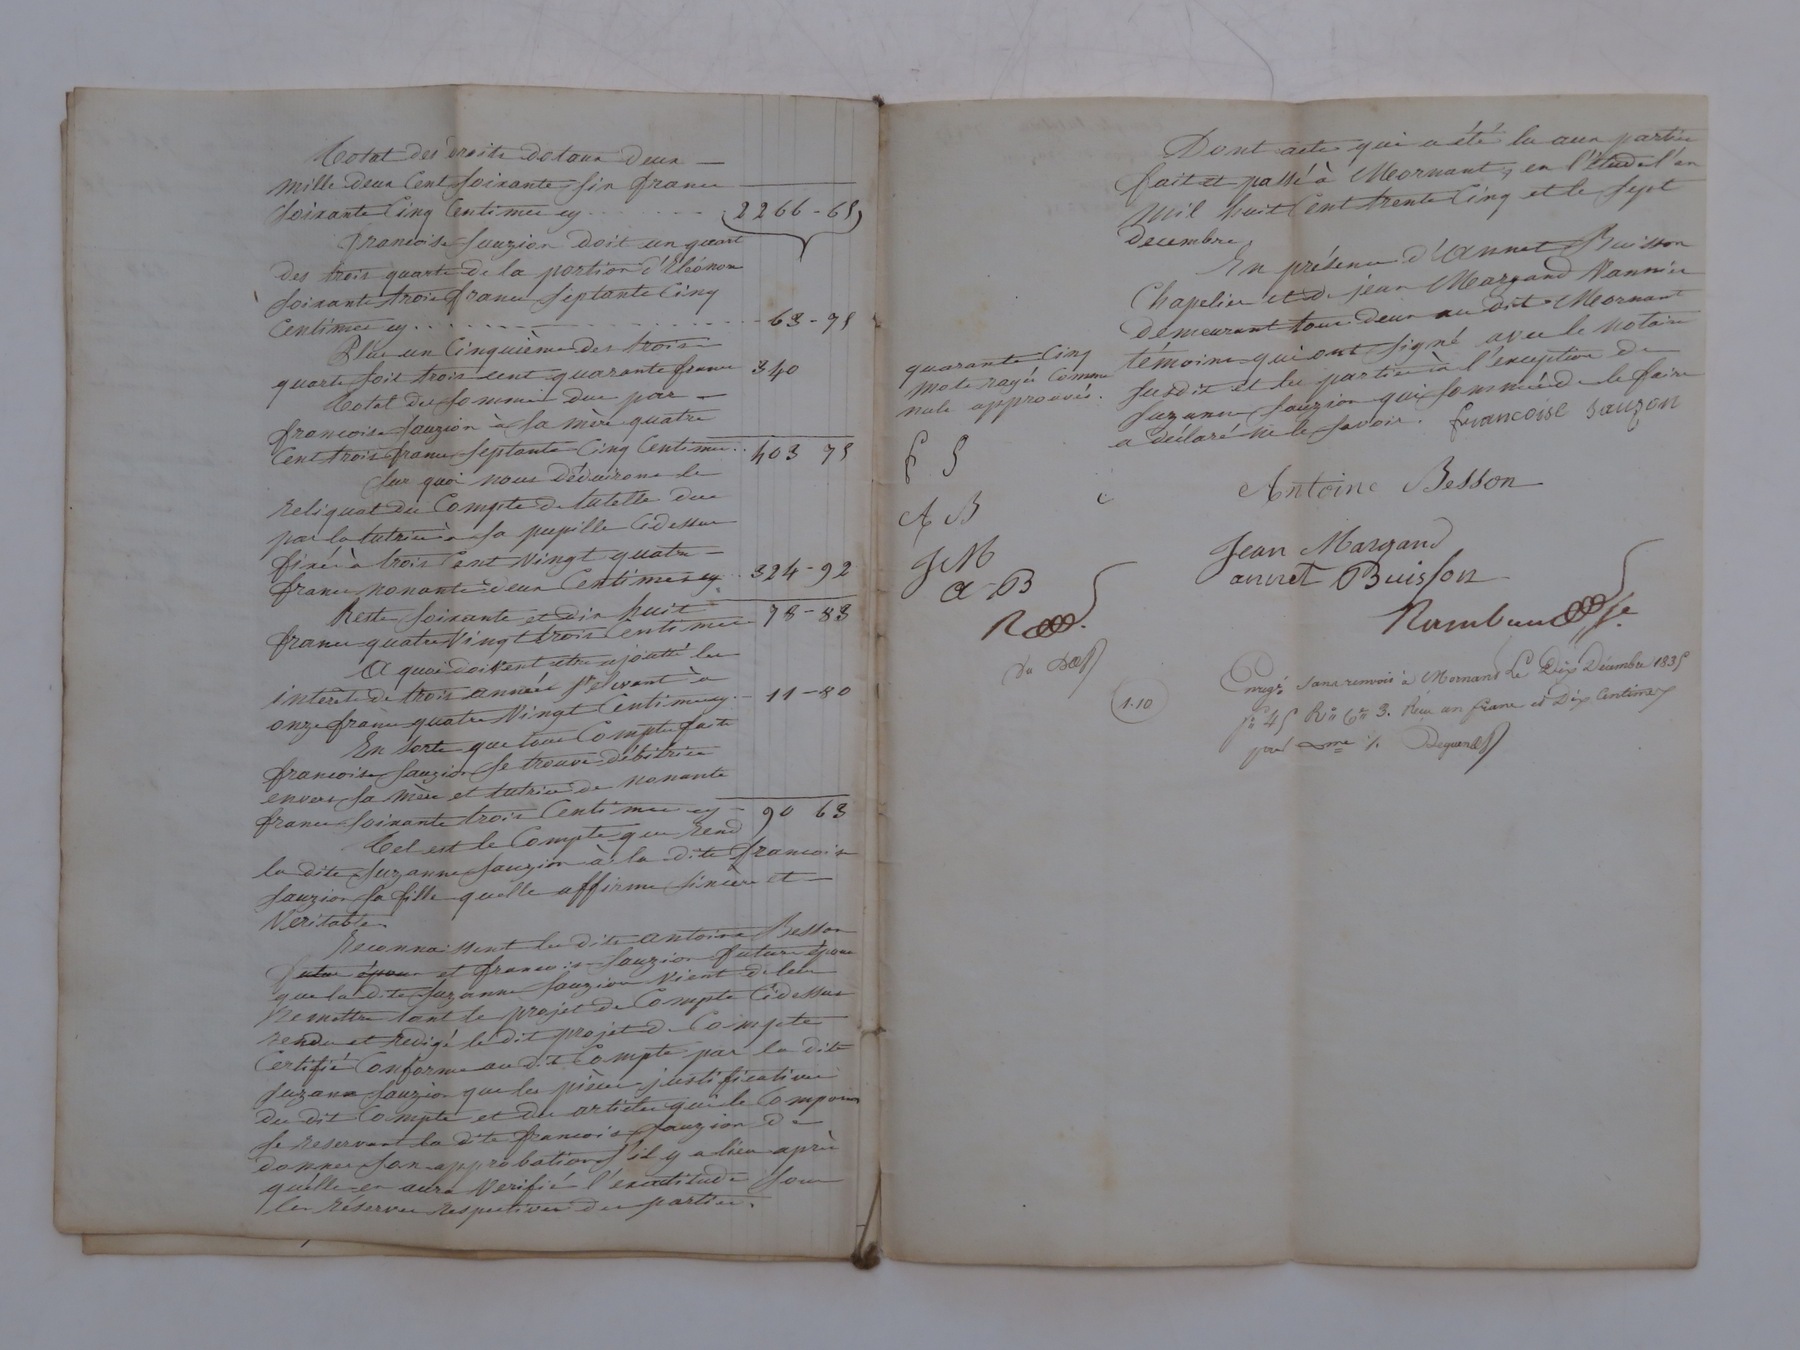 Total des droits de tous deux —
mille deux Cent Soixante Six francs
Soixante Cinq Centimes cy . . . . . . . 2266-65
françoise Sauzion doit un quart
des trois quarts de la portion d'Eléonore
Soixante trois francs Septante Cinq
Centimes cy . . . . . . . . . . . 63-75
Plus un Cinquième des trois
quarts soit trois cent quarante francs 340
Total des sommes dues par —
françoise Sauzion à sa mère quatre
Cent trois francs Septante Cinq Centimes . . 403 75
Sur quoi nous déduirons le
reliquat du Compte de tutelle due
par la tutrice à sa pupille Cidessus
fixée à trois Cent Vingt quatre —
francs nonante deux Centimes cy . . 324-92
Reste soixante et dix huit
francs quatre Vingt trois Centimes 78-83
A quoi doivent etre ajouttés les
interêts de trois années s'elevant à
onze francs quatre Vingt Centimes cy — 11-80
En sorte que tous Compte faits
françoise Sauzion se trouve débitrice
envers sa mère et tutrice de nonante
francs Soixante trois Centimes cy — 90 63
Tel est le Compte que rend
la dite Suzanne Sauzion à la dite françoise
Sauzion sa fille quelle affirme Sincère et —
Veritable
Reconnaissent les dits antoine Besson
futur époux et françoise Sauzion future épouse
que la dite Suzanne Sauzion Vient de leur
Remettre tant le projet de Compte Cidessus
rendu et redigé le dit projet de Compte
Certifié Conforme au dit Compte par la dite
Suzanne Sauzion que les pièces justificatives
du dit Compte et des articles qui le Composent
Se reservant la dite françoise Sauzion de
donner son approbation S'il y a lieu après
quelle en aura Verifié l'exactitude Sous
les réserves respectives des parties.
Dont acte qui a été lu aux parties
fait et passé à Mornant, en l'étude l'an
Mil huit Cent trente Cinq et le Sept
decembre,
En présence d'Annet Buisson
Chapelier et de jean Margand Vannier
demeurant tous deux au dit Mornant
témoins qui ont signé avec le notaire
susdit et les parties à l'exception de
Suzanne Sauzion qui sommée de le faire
a déclaré ne le savoir. françoise sauzon
quarante Cinq
mots rayés Comme
nuls approuvés.
f S
A B
JM
a-B
Antoine Besson
Jean Margand
annet Buisson
1.10
Enregé sans renvois à Mornant le Dix Décembre 1835
fo 45 Ro Ce 3. Reçu un franc et Dix Centimes